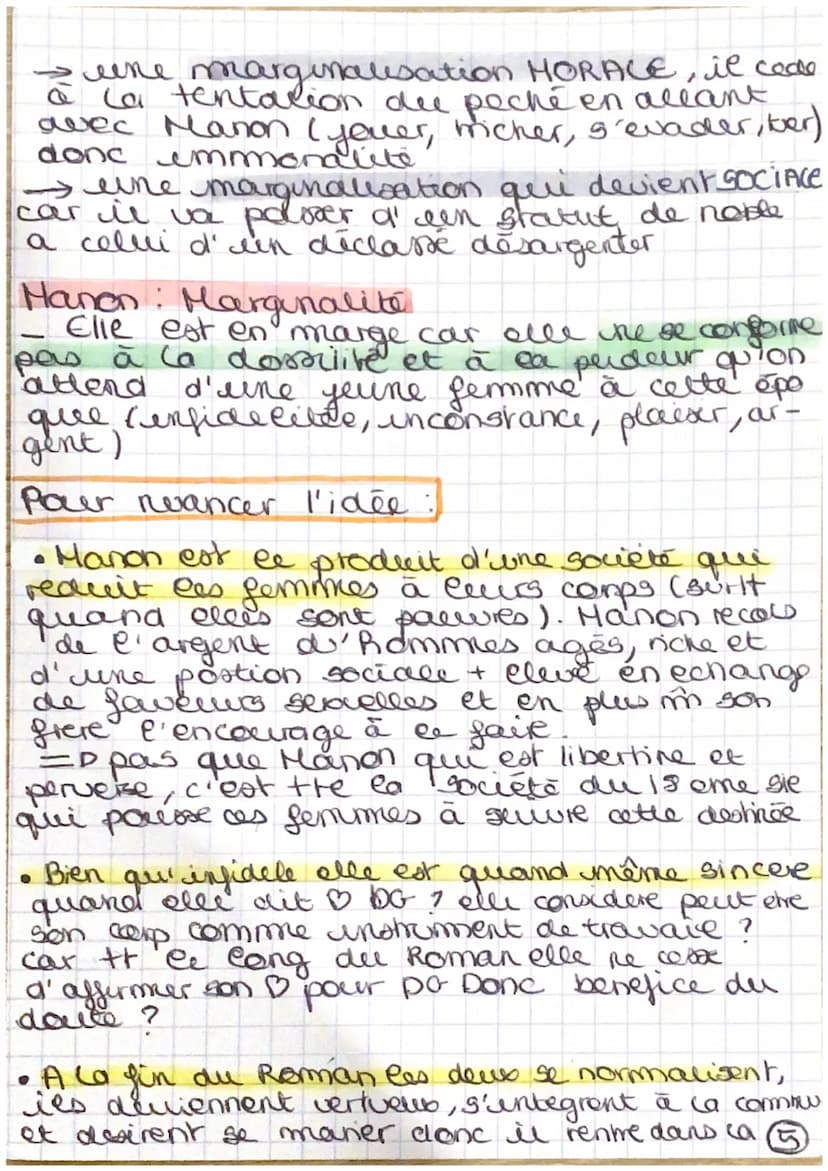 → une marginalisation MORALE, il cede
à la tentation du peché en allant
avec Manon (jouer, tricher, s'evader, tuer)
donc immoralité
→ une marginalisation qui devient SOCIALE
car il va passer d'un statut de noble
a celui d'un déclassé désargenter
Manon : Marginalité
- Elle est en marge car elle ne se conforme
pas à la dossilité et à la pudeur qu'on
attend d'une jeune femme à cette épo
que (infidelitée, inconstance, plaisir, ar-
gent)
Pour nuancer l'idée :
• Manon est le produit d'une société qui
reduit les femmes à leurs corps (surtt
quand elles sont pauvres). Manon recois
de l'argent d'hommes agés, riche et
d'une position sociale + elevé en echange
de faveurs sexuelles et en plus m̂ son
frere l'encourage à le faire.
=D pas que Manon qui est libertine et
perverse, c'est tte la société du 18 eme sie
qui pousse ces femmes à suivre cette destinée
• Bien qu'infidele elle est quand même sincere
quand elle dit ♡ DG ? elle considere peut etre
son corp comme instrument de travail ?
car tt le long du Roman elle ne cesse
d'affirmer son ♡ pour DG Donc benefice du
doute ?
• A la fin du Roman les deux se normalisent,
ils deviennent vertueux, s'intègrent à la commu
et desirent se marier donc il rentre dans la 5